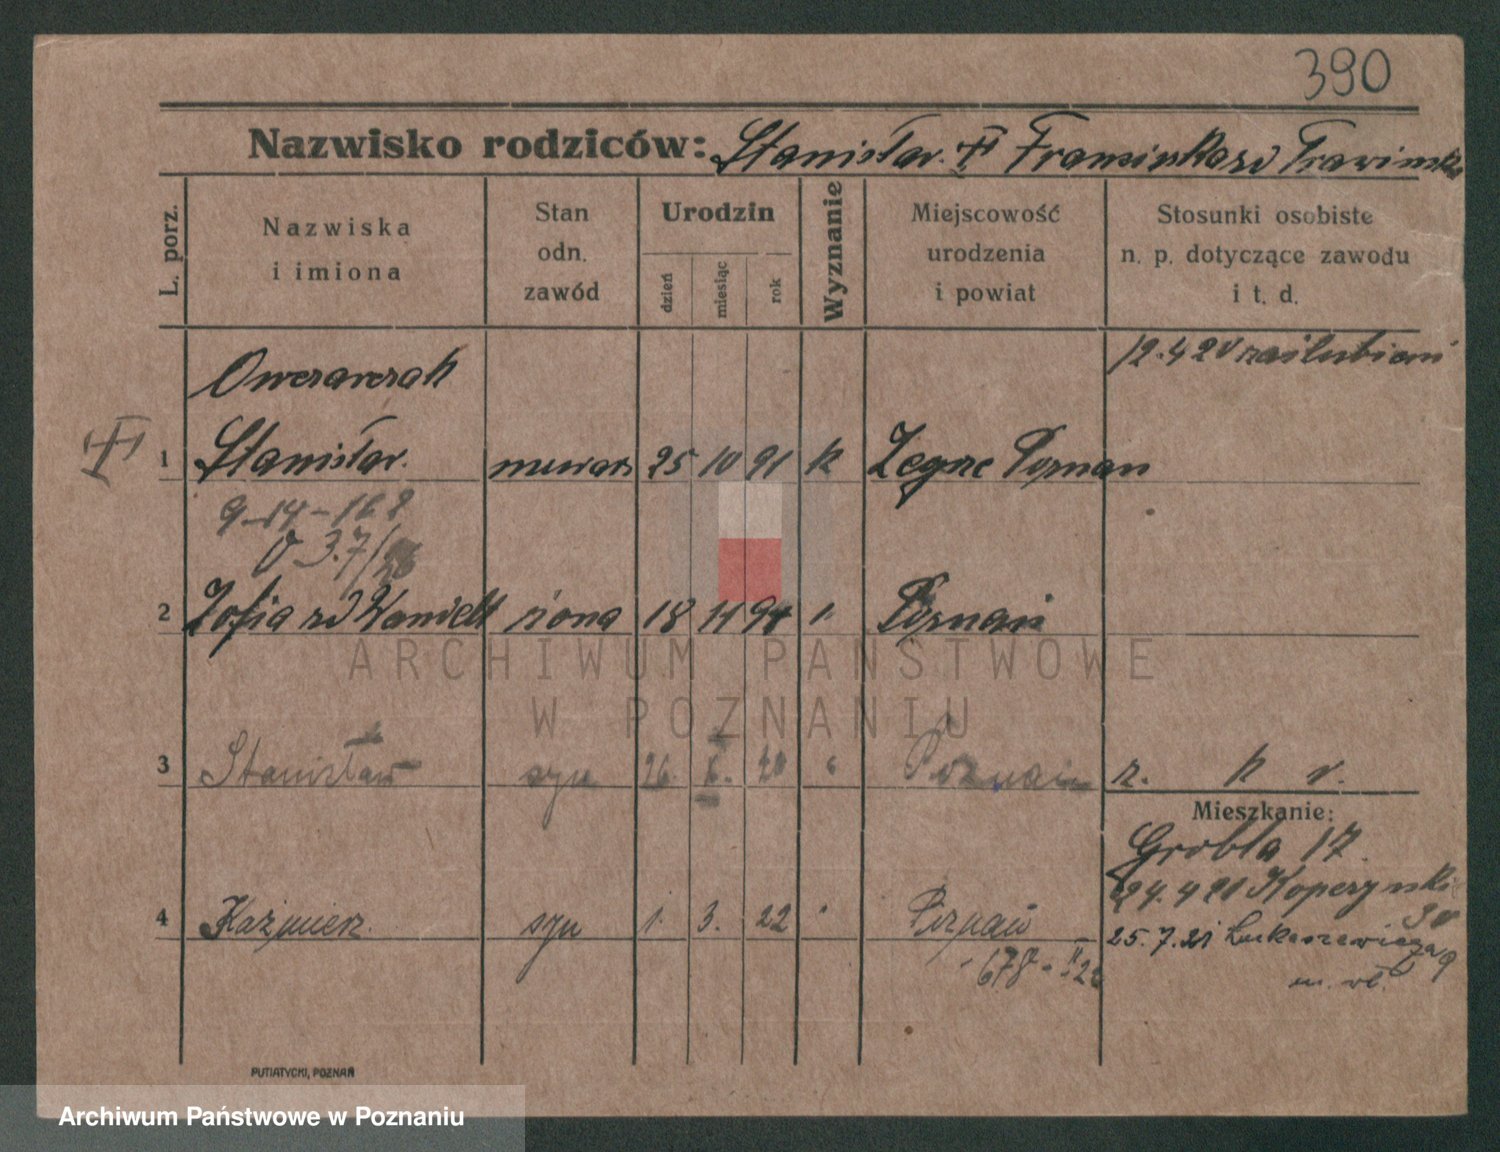 390
Nazwisko rodziców: Stanisław + Franciszka zd Trawinska
L. porz.
Nazwiska
i imiona
Stan
odn.
zawód
Urodzin
dzień
miesiąc
rok
Wyznanie
Miejscowość
urodzenia
i powiat
Stosunki osobiste
n. p. dotyczące zawodu
i t. d.
12.4 20 zaślubieni
Owczarczak
1 Stanisław. murarz 25 10 91 k Zegrze Poznan
9-14-168
3.7/26
2 Zofia zd Wand​elt żona 18 11 94 Poznań
3 Stanisław syn 26. X. 20 Poznań
z. k v.
Mieszkanie:
Grobla 17.
24.4 20 Kopczynski
4 Kaźmierz. syn 1. 3. 22 Poznań
25.7.21 Łukaszewicza 9
678 - II 22
m. wł.
PUTIATYCKI, POZNAŃ
ARCHIWUM PAŃSTWOWE
W POZNANIU
Archiwum Państwowe w Poznaniu